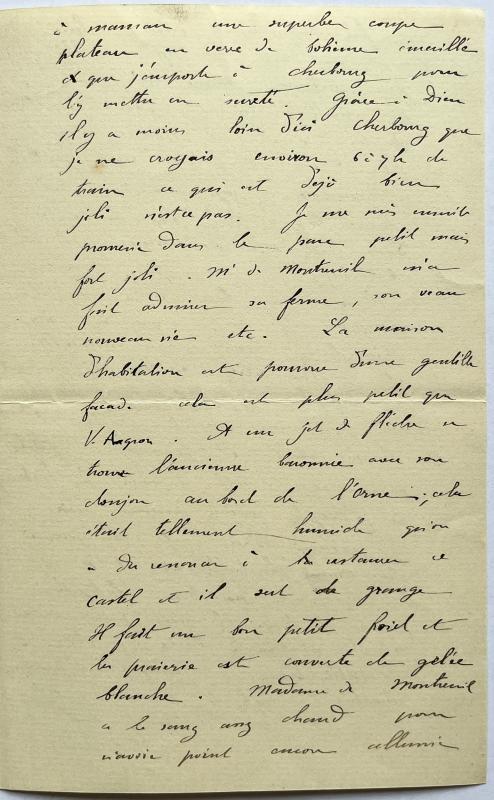 à maman une superbe coupe
plateau en verre de bohème émaillé
et que j'emporte à cherbourg pour
l'y mettre en sureté. Grâce à Dieu
il y a moins loin d'ici cherbourg que
je ne croyais environ 6 à 7h de
train ce qui est déjà bien
joli n'est ce pas. Je me suis ensuite
promenée dans le parc petit mais
fort joli. Mr de Montreuil m'a
fait admirer sa ferme, son veau
nouveau né etc. La maison
d'habitation est pourvue d'une gentille
façade cela est plus petit que
V. A un jet de flèche on
trouve l'ancienne baronnie avec son
donjon au bord de l'orne ; cela
était tellement humide qu'on
a du renoncer à restaurer ce
castel et il sert de grange
Il fait un bon petit froid et
la prairie est couverte de gelée
blanche. Madame de Montreuil
a le sang assez chaud pour
n'avoir point encore allumé